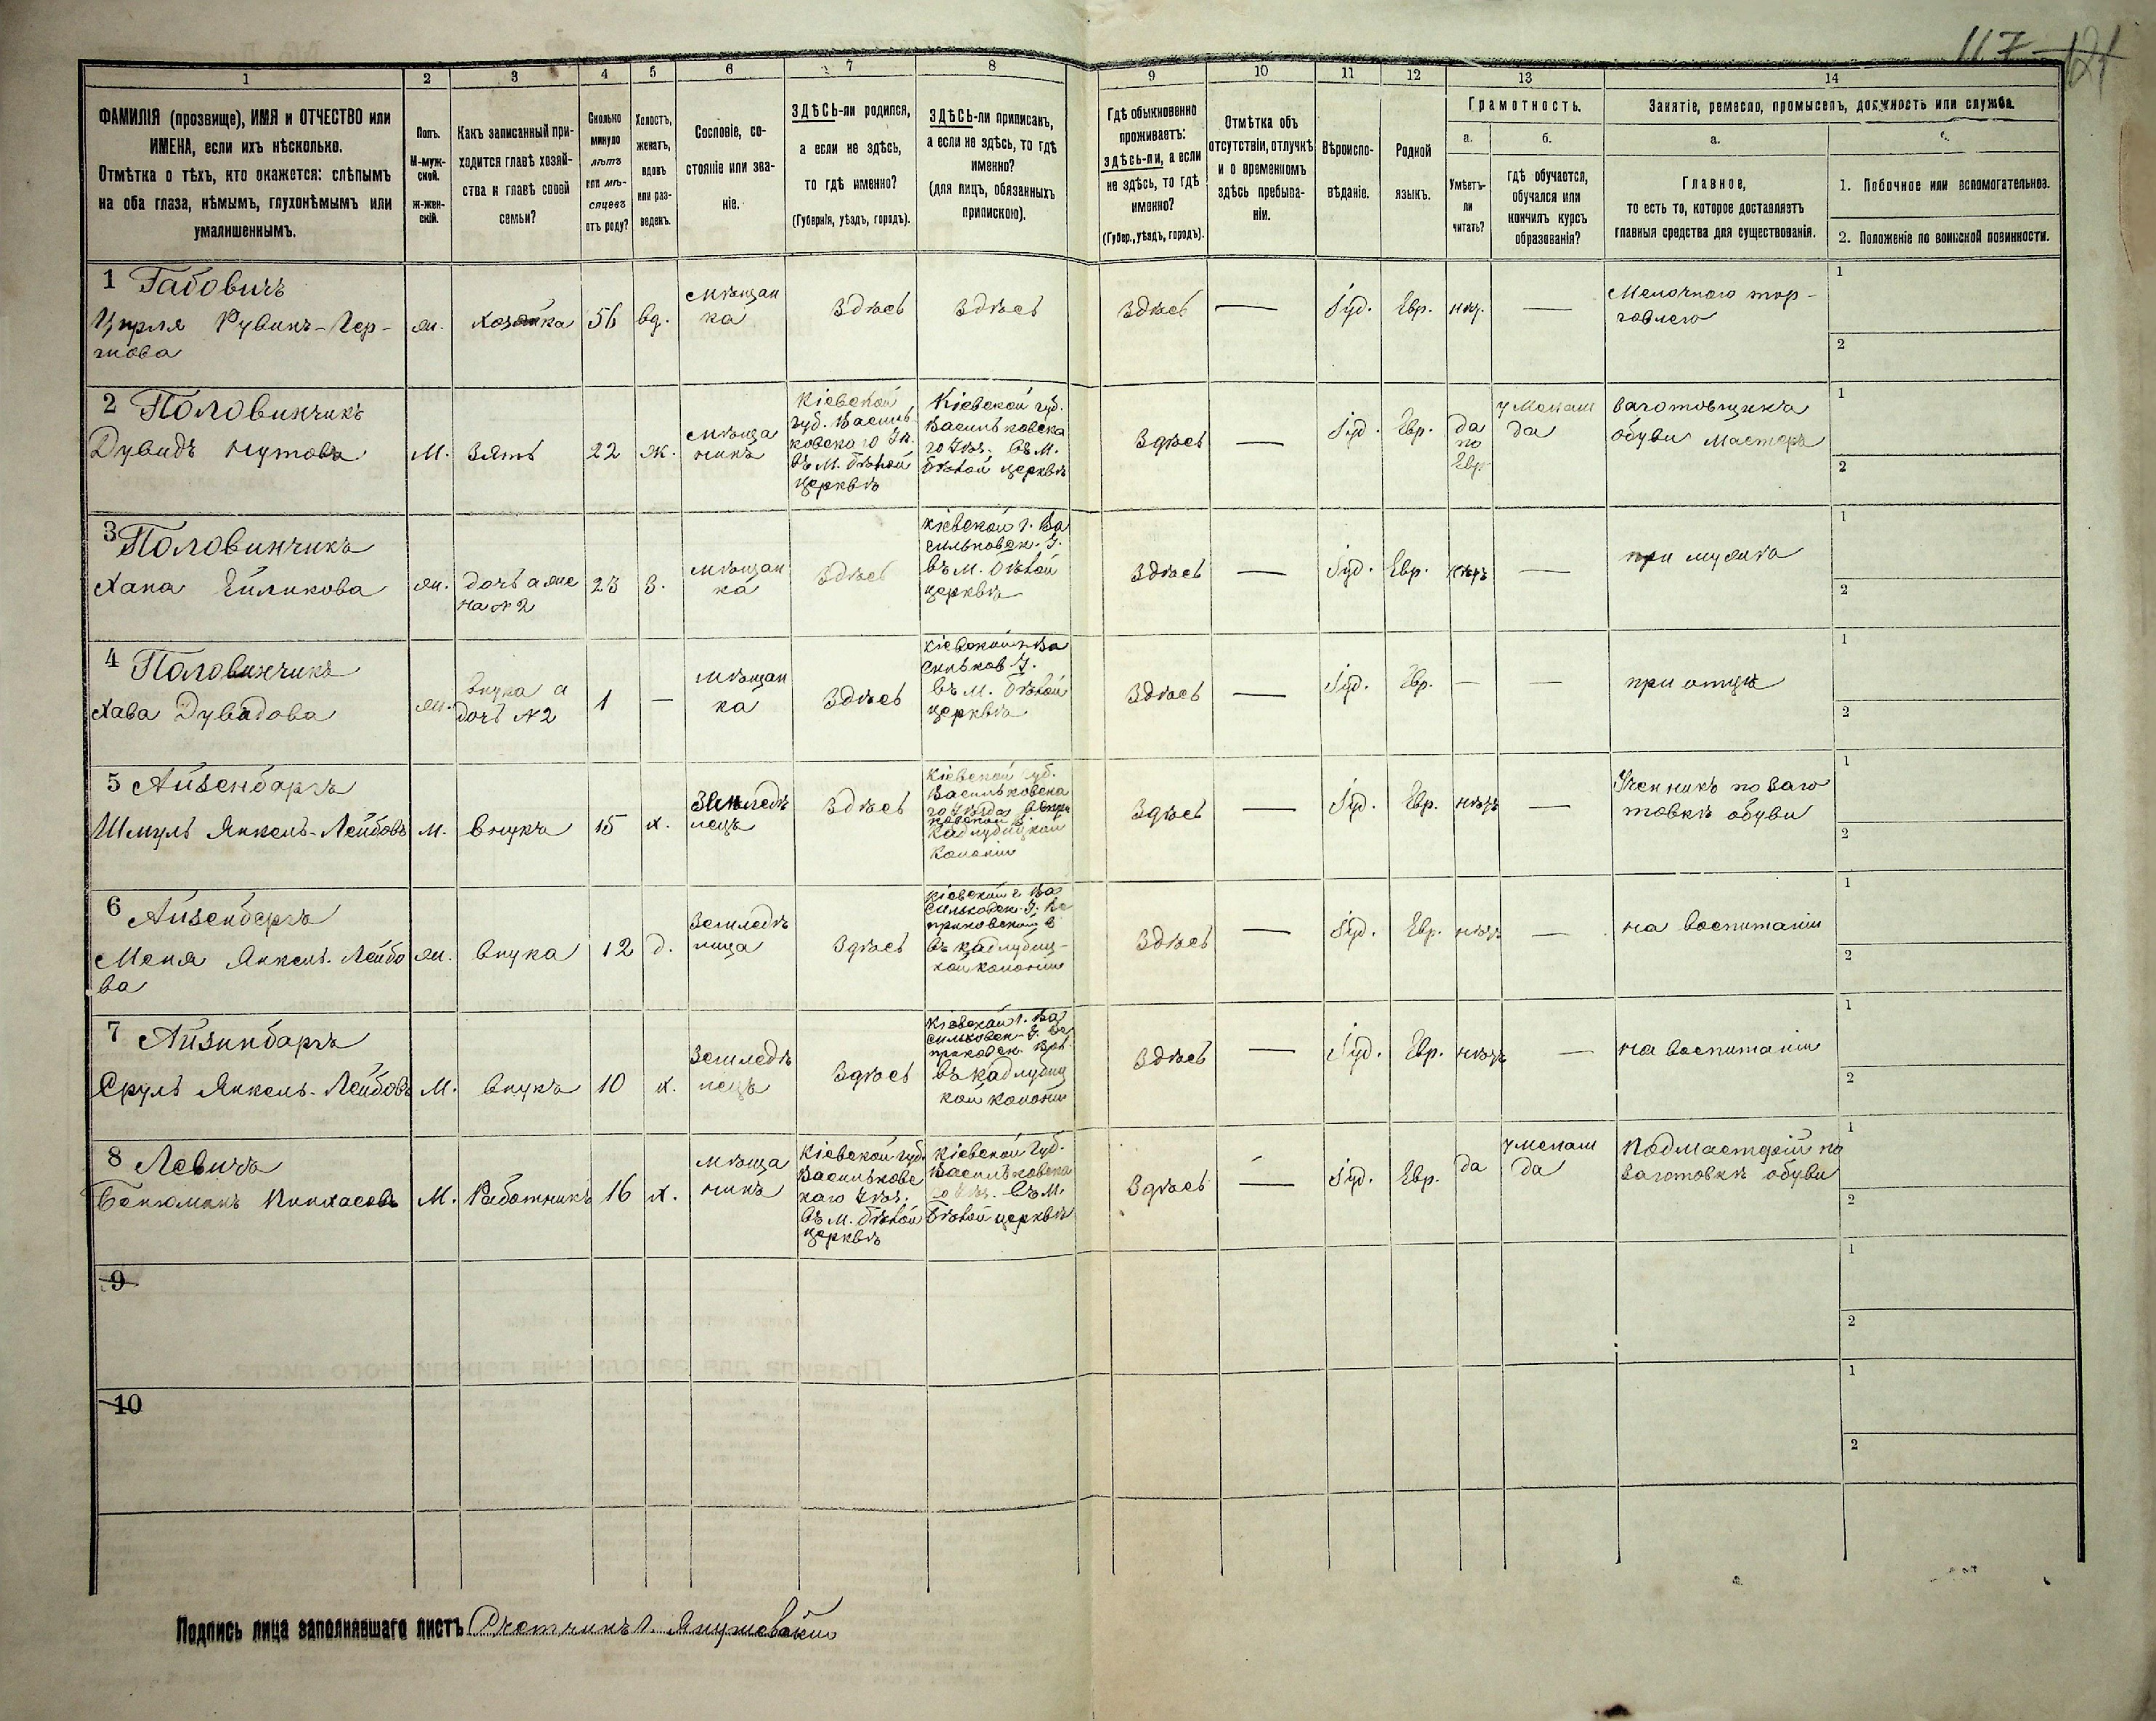 117
121
1
2
3
4
5
6
7
8
9
10
11
12
13
14
ФАМИЛІЯ (прозвище), ИМЯ и ОТЧЕСТВО или
ИМЕНА, если ихъ нѣсколько.
Отмѣтка о тѣхъ, кто окажется: слѣпымъ
на оба глаза, нѣмымъ, глухонѣмымъ или
умалишеннымъ.
Полъ.
М-муж-
ской.
Ж-жен-
скій.
Какъ записанный при-
ходится главѣ хозяй-
ства и главѣ своей
семьи?
Сколько
минуло
лѣтъ
или мѣ-
сяцевъ
отъ роду?
Холостъ,
женатъ,
вдовъ
или раз-
веденъ.
Сословіе, со-
стояніе или зва-
ніе.
ЗДѢСЬ-ли родился,
а если не здѣсь,
то гдѣ именно?
(Губернія, уѣздъ, городъ).
ЗДѢСЬ-ли приписанъ,
а если не здѣсь, то гдѣ
именно?
(для лицъ, обязанныхъ
припискою).
Гдѣ обыкновенно
проживаетъ:
здѣсь-ли, а если
не здѣсь, то гдѣ
именно?
(Губер., уѣздъ, городъ).
Отмѣтка объ
отсутствіи, отлучкѣ
и о временномъ
здѣсь пребыва-
ніи.
Вѣроиспо-
вѣданіе.
Родной
языкъ.
Грамотность.
а.
Умѣетъ-
ли
читать?
б.
гдѣ обучается,
обучался или
кончилъ курсъ
образованія?
Занятіе, ремесло, промыселъ, должность или служба.
а.
Главное,
то есть то, которое доставляетъ
главныя средства для существованія.
1. Побочное или вспомогательное.
2. Положеніе по воинской повинности.
1 Габовичъ
Цирля Рувинъ-Гер-
шова
жн.
Хозяйка
56
вд.
Мѣщан
ка
Здѣсь
Здѣсь
Здѣсь
—
Іуд.
Евр.
—
Мелочною тор-
говлею
1
2
2 Половинчикъ
Дувидъ Нутовъ
М.
Зять
22
ж.
Мѣща
нинъ
Кіевской
губ. Василь
ковскаго Уѣ.
въ М. Бѣлой
церквѣ
Кіевской губ.
Васильковска
го Уѣз. въ М.
Бѣлой церквѣ
Здѣсь
—
Іуд.
Евр.
да
по
Евр.
у Мелам
да
Заготовщика
обуви мастеръ
1
2
3 Половинчикъ
Хана Ейликова
жн.
дочь а же
на № 2
23
З.
Мѣщан
ка
Здѣсь
Кіевской г. Ва
сильковск. У.
въ М. Бѣлой
церквѣ
Здѣсь
—
Іуд.
Евр.
—
при мужѣ
1
2
4 Половинчикъ
Хава Дувидова
жн.
внука а
дочь № 2
1
—
Мѣщан
ка
Здѣсь
Кіевской г. Ва
сильков У.
въ М. Бѣлой
церквѣ
Здѣсь
—
Іуд.
Евр.
—
—
при отцѣ
1
2
5 Айзенбаргъ
Шмуль Янкель-Лейбовъ
М.
внукъ
15
х.
Земледѣ
лецъ
Здѣсь
Кіевской губ.
Васильковска
го Уѣзда
Кадлубицкой
Колоніи
Здѣсь
—
Іуд.
Евр.
нѣтъ
—
Ученикъ по заго
товкѣ обуви
1
2
6 Айзенбергъ
Меня Янкель-Лейбо
ва
жн.
внука
12
д.
Земледѣ
лица
Здѣсь
Кіевской г. Ва
сильковск. У.
въ Кадлубиц-
кой колоніи
Здѣсь
—
Іуд.
Евр.
нѣтъ
—
на воспитаніи
1
2
7 Айзинбаргъ
Сруль Янкель-Лейбовъ
М.
внукъ
10
х.
Земледѣ
лецъ
Здѣсь
Кіевской г. Ва
сильковск. У.
въ Кадлубиц
кой колоніи
Здѣсь
—
Іуд.
Евр.
нѣтъ
—
на воспитаніи
1
2
8 Левичъ
Пинхасовъ
М.
Работникъ
16
х.
Мѣща
нинъ
Кіевской губ.
Васильковс
каго Уѣз.
въ М. Бѣлой
церквѣ
Кіевской губ.
Васильковска
го Уѣз. въ М.
Бѣлой церквѣ
Здѣсь
—
Іуд.
Евр.
да
у мелам
да
Подмастерій по
заготовкѣ обуви
1
2
9
1
2
10
1
2
Подпись лица заполнявшаго листъ Счетчикъ